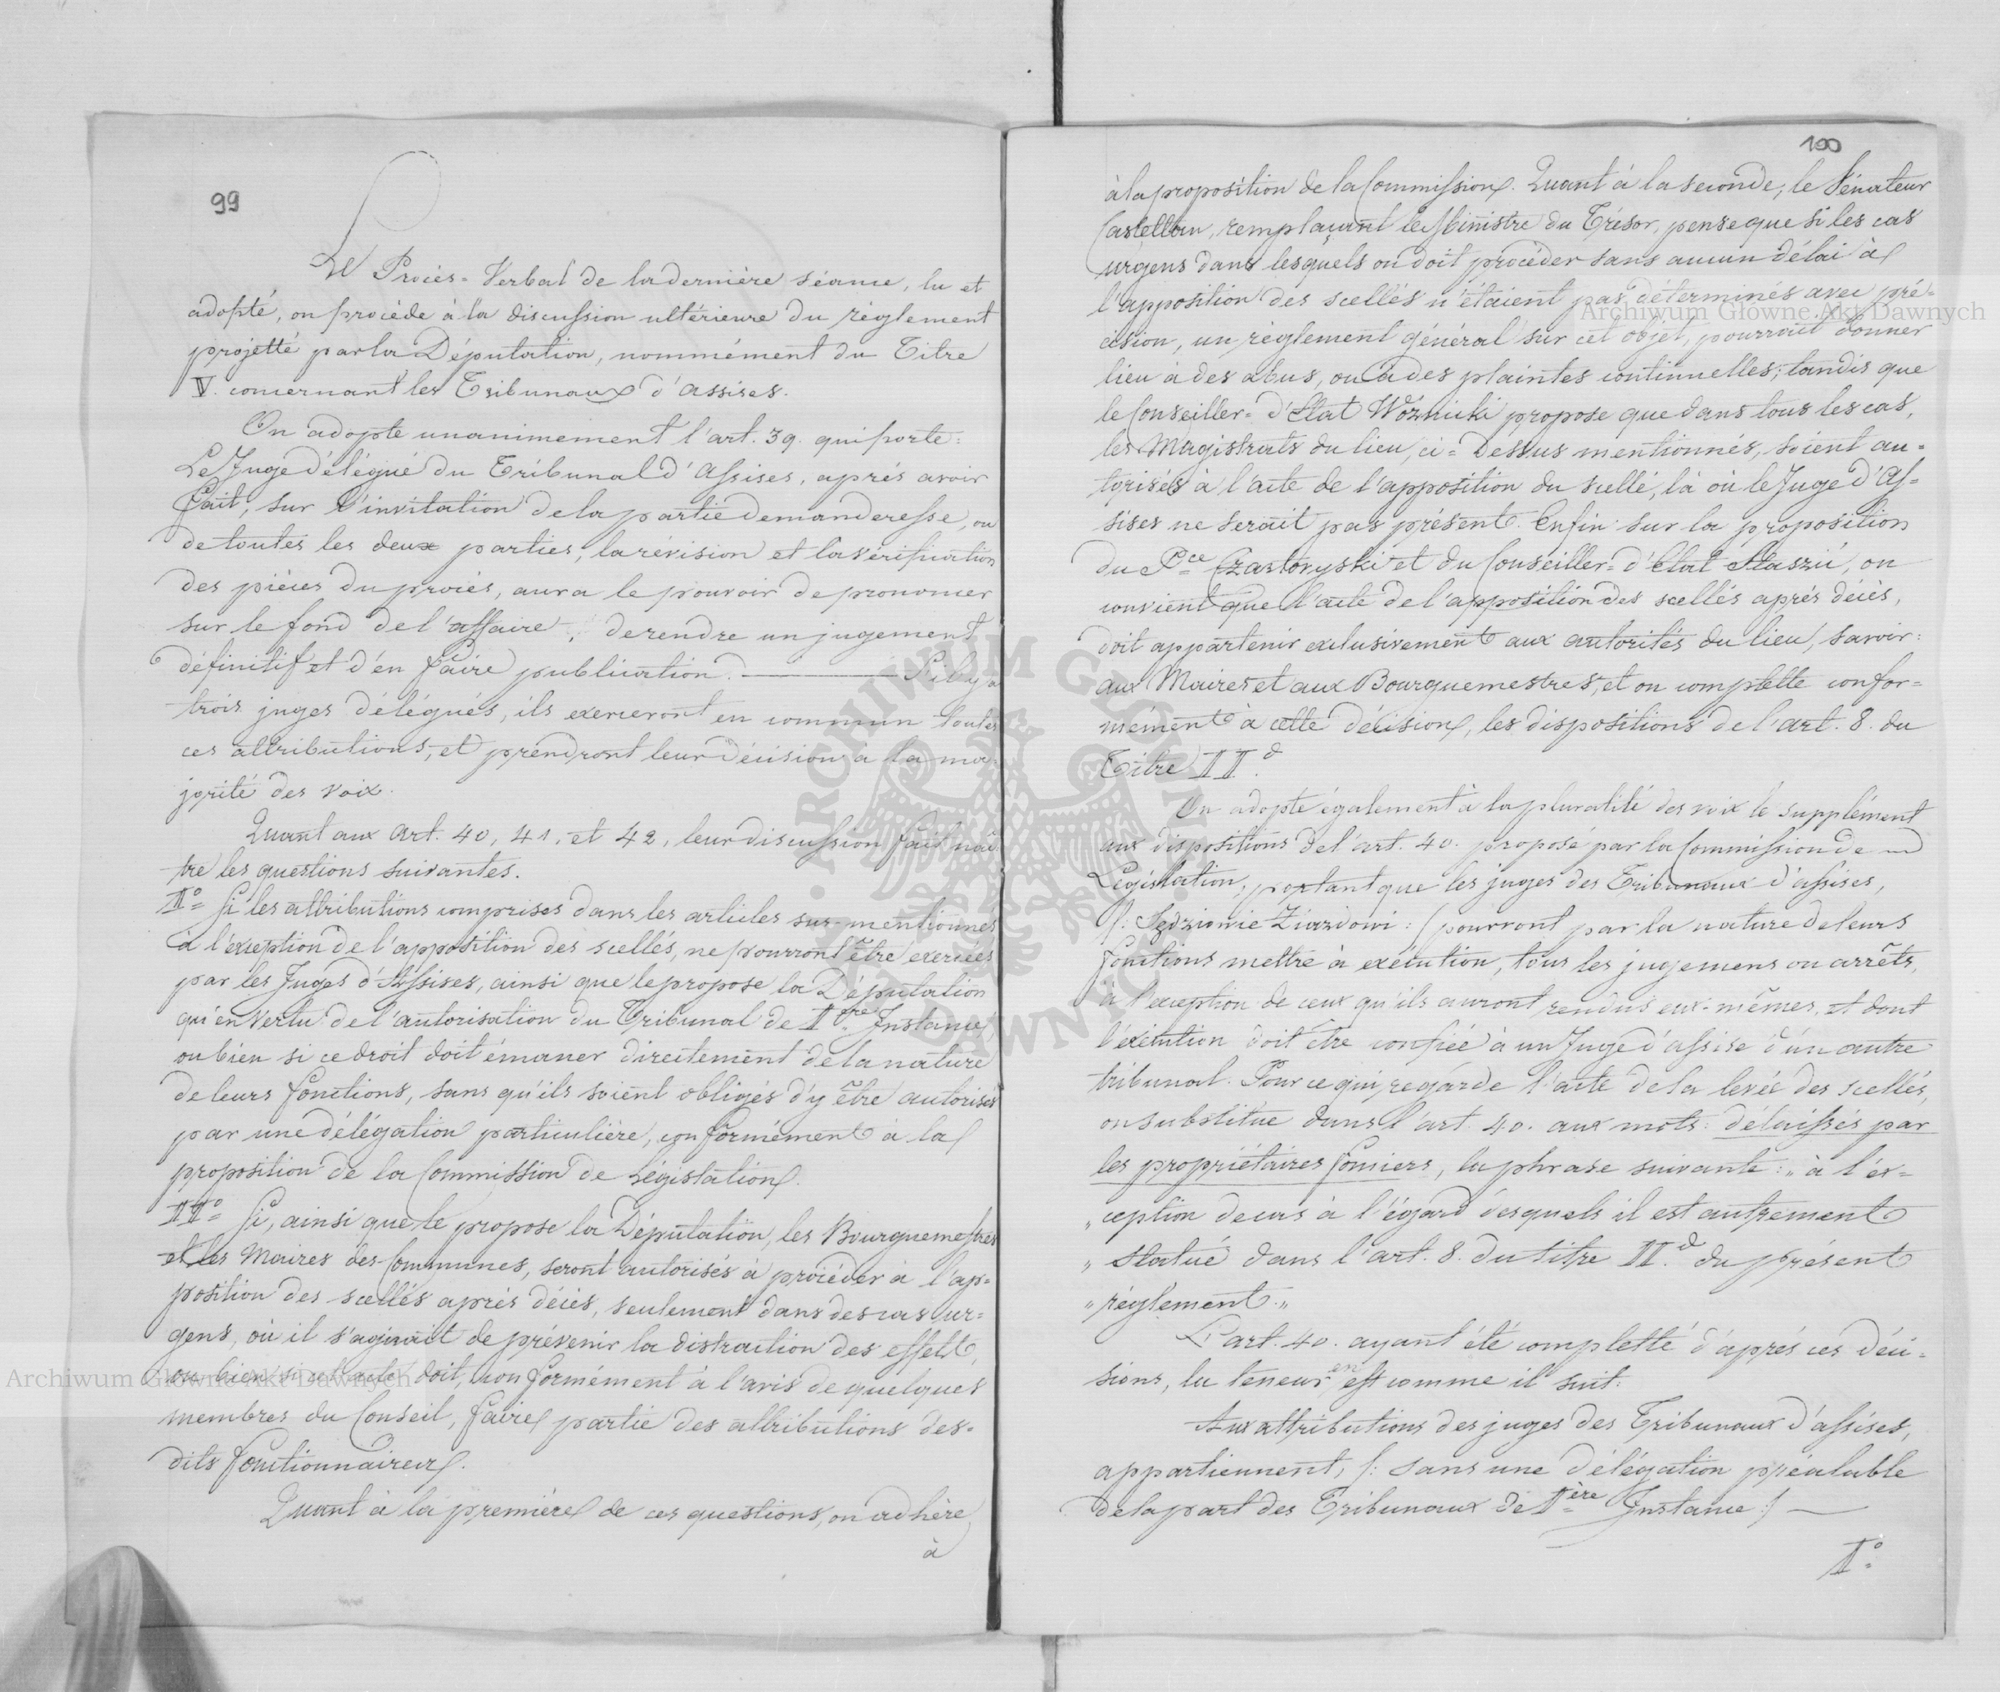 99
Le Procès-Verbal de la dernière séance, lu et
adopté, on procède à la discussion ultérieure du réglement
projetté par la Députation, nommément du Titre
V. concernant les Tribunaux d'assises.
On adopte unanimement l'art. 39. qui porte:
Le Juge délégué du Tribunal d'Assises, après avoir
fait, sur l'invitation de la partie demanderesse, ou
de toutes les deux parties, la révision et la vérification
des pièces du procès, aura le pouvoir de prononcer
sur le fond de l'affaire, de rendre un jugement
définitif et d'en faire publication. — S'il y a
trois juges délégués, ils exerceront en commun toutes
ces attributions, et prendront leur décision à la ma-
jorité des voix.
Quant aux art. 40, 41, et 42, leur discussion fait naî-
tre les questions suivantes.
I° Si les attributions comprises dans les articles sus-mentionnés
à l'exception de l'apposition des scellés, ne pourront être exercées
par les Juges d'Assises, ainsi que le propose la Députation
qu'en vertu de l'autorisation du Tribunal de 1ère Instance,
ou bien si ce droit doit émaner directement de la nature
de leurs fonctions, sans qu'ils soient obligés d'y être autorisés
par une délégation particulière, conformément à la
proposition de la Commission de Législation.
II° Si, ainsi que le propose la Députation, les Bourguemestres
et les Maires des Communes, seront autorisés à procéder à l'ap-
position des scellés après décès, seulement dans des cas ur-
gens, où il s'agiroit de prévenir la distraction des effets,
ou bien si cet acte doit, conformément à l'avis de quelques
membres du Conseil, faire partie des attributions des-
dits fonctionnaires.
Quant à la première de ces questions, on adhère
à
100
à la proposition de la Commission. Quant à la seconde, le Sénateur
Castellan, remplaçant le Ministre du Trésor, pense que si les cas
urgens dans lesquels on doit procéder sans aucun délai à
l'apposition des scellés n'étaient pas déterminés avec pré-
cision, un réglement général sur cet objet, pourroit donner
lieu à des abus, ou à des plaintes continuelles; tandis que
le Conseiller-d'Etat Woźnicki propose que dans tous les cas,
les Magistrats du lieu, ci-dessus mentionnés, soient au-
torisés à l'acte de l'apposition du scellé, là où le Juge d'As-
sises ne seroit pas présent. Enfin sur la proposition
du Pce Czartoryski et du Conseiller-d'Etat Staszic, on
convient que l'acte de l'apposition des scellés après décès,
doit appartenir exclusivement aux autorités du lieu, savoir:
aux Maires et aux Bourguemestres, et on complette confor-
mément à cette décision, les dispositions de l'art. 8. du
Titre IId
On adopte également à la pluralité des voix le supplément
aux dispositions de l'art. 40. proposé par la Commission de
Législation, portant que les juges des Tribunaux d'assises,
/: Sędziowie Ziazdowi :/ pourront par la nature de leurs
fonctions mettre à exécution, tous les jugemens ou arrêts,
à l'exception de ceux qu'ils auront rendus eux-mêmes, et dont
l'exécution doit être confiée à un Juge d'assise d'un autre
tribunal. Pour ce qui regarde l'acte de la levée des scellés,
on substitue dans l'art. 40. aux mots: délaissés par
les propriétaires fonciers, la phrase suivante: „ à l'ex-
„ ception de cas à l'égard desquels il est autrement
„ statué dans l'art. 8. du titre IId du présent
„ réglement. „
L'art. 40. ayant été completté d'après ces déci-
sions, la teneur en est comme il suit.
Aux attributions des juges des Tribunaux d'assises,
appartiennent, /: sans une délégation préalable
de la part des Tribunaux de 1ère Instance :/ —
I°
Archiwum Główne Akt Dawnych
Archiwum Główne Akt Dawnych
ARCHIWUM GŁÓWNE AKT DAWNYCH